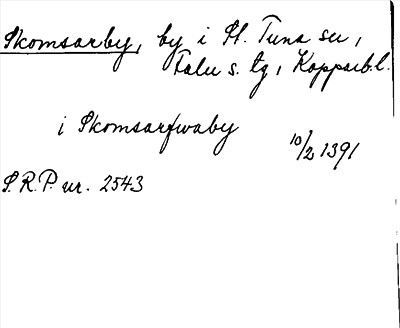 Skomsarby, by i St. Tuna sn,
Falu s. tg, Kopparb.l.
i Skomsarfwaby
10/2 1391
S.R.P. nr. 2543